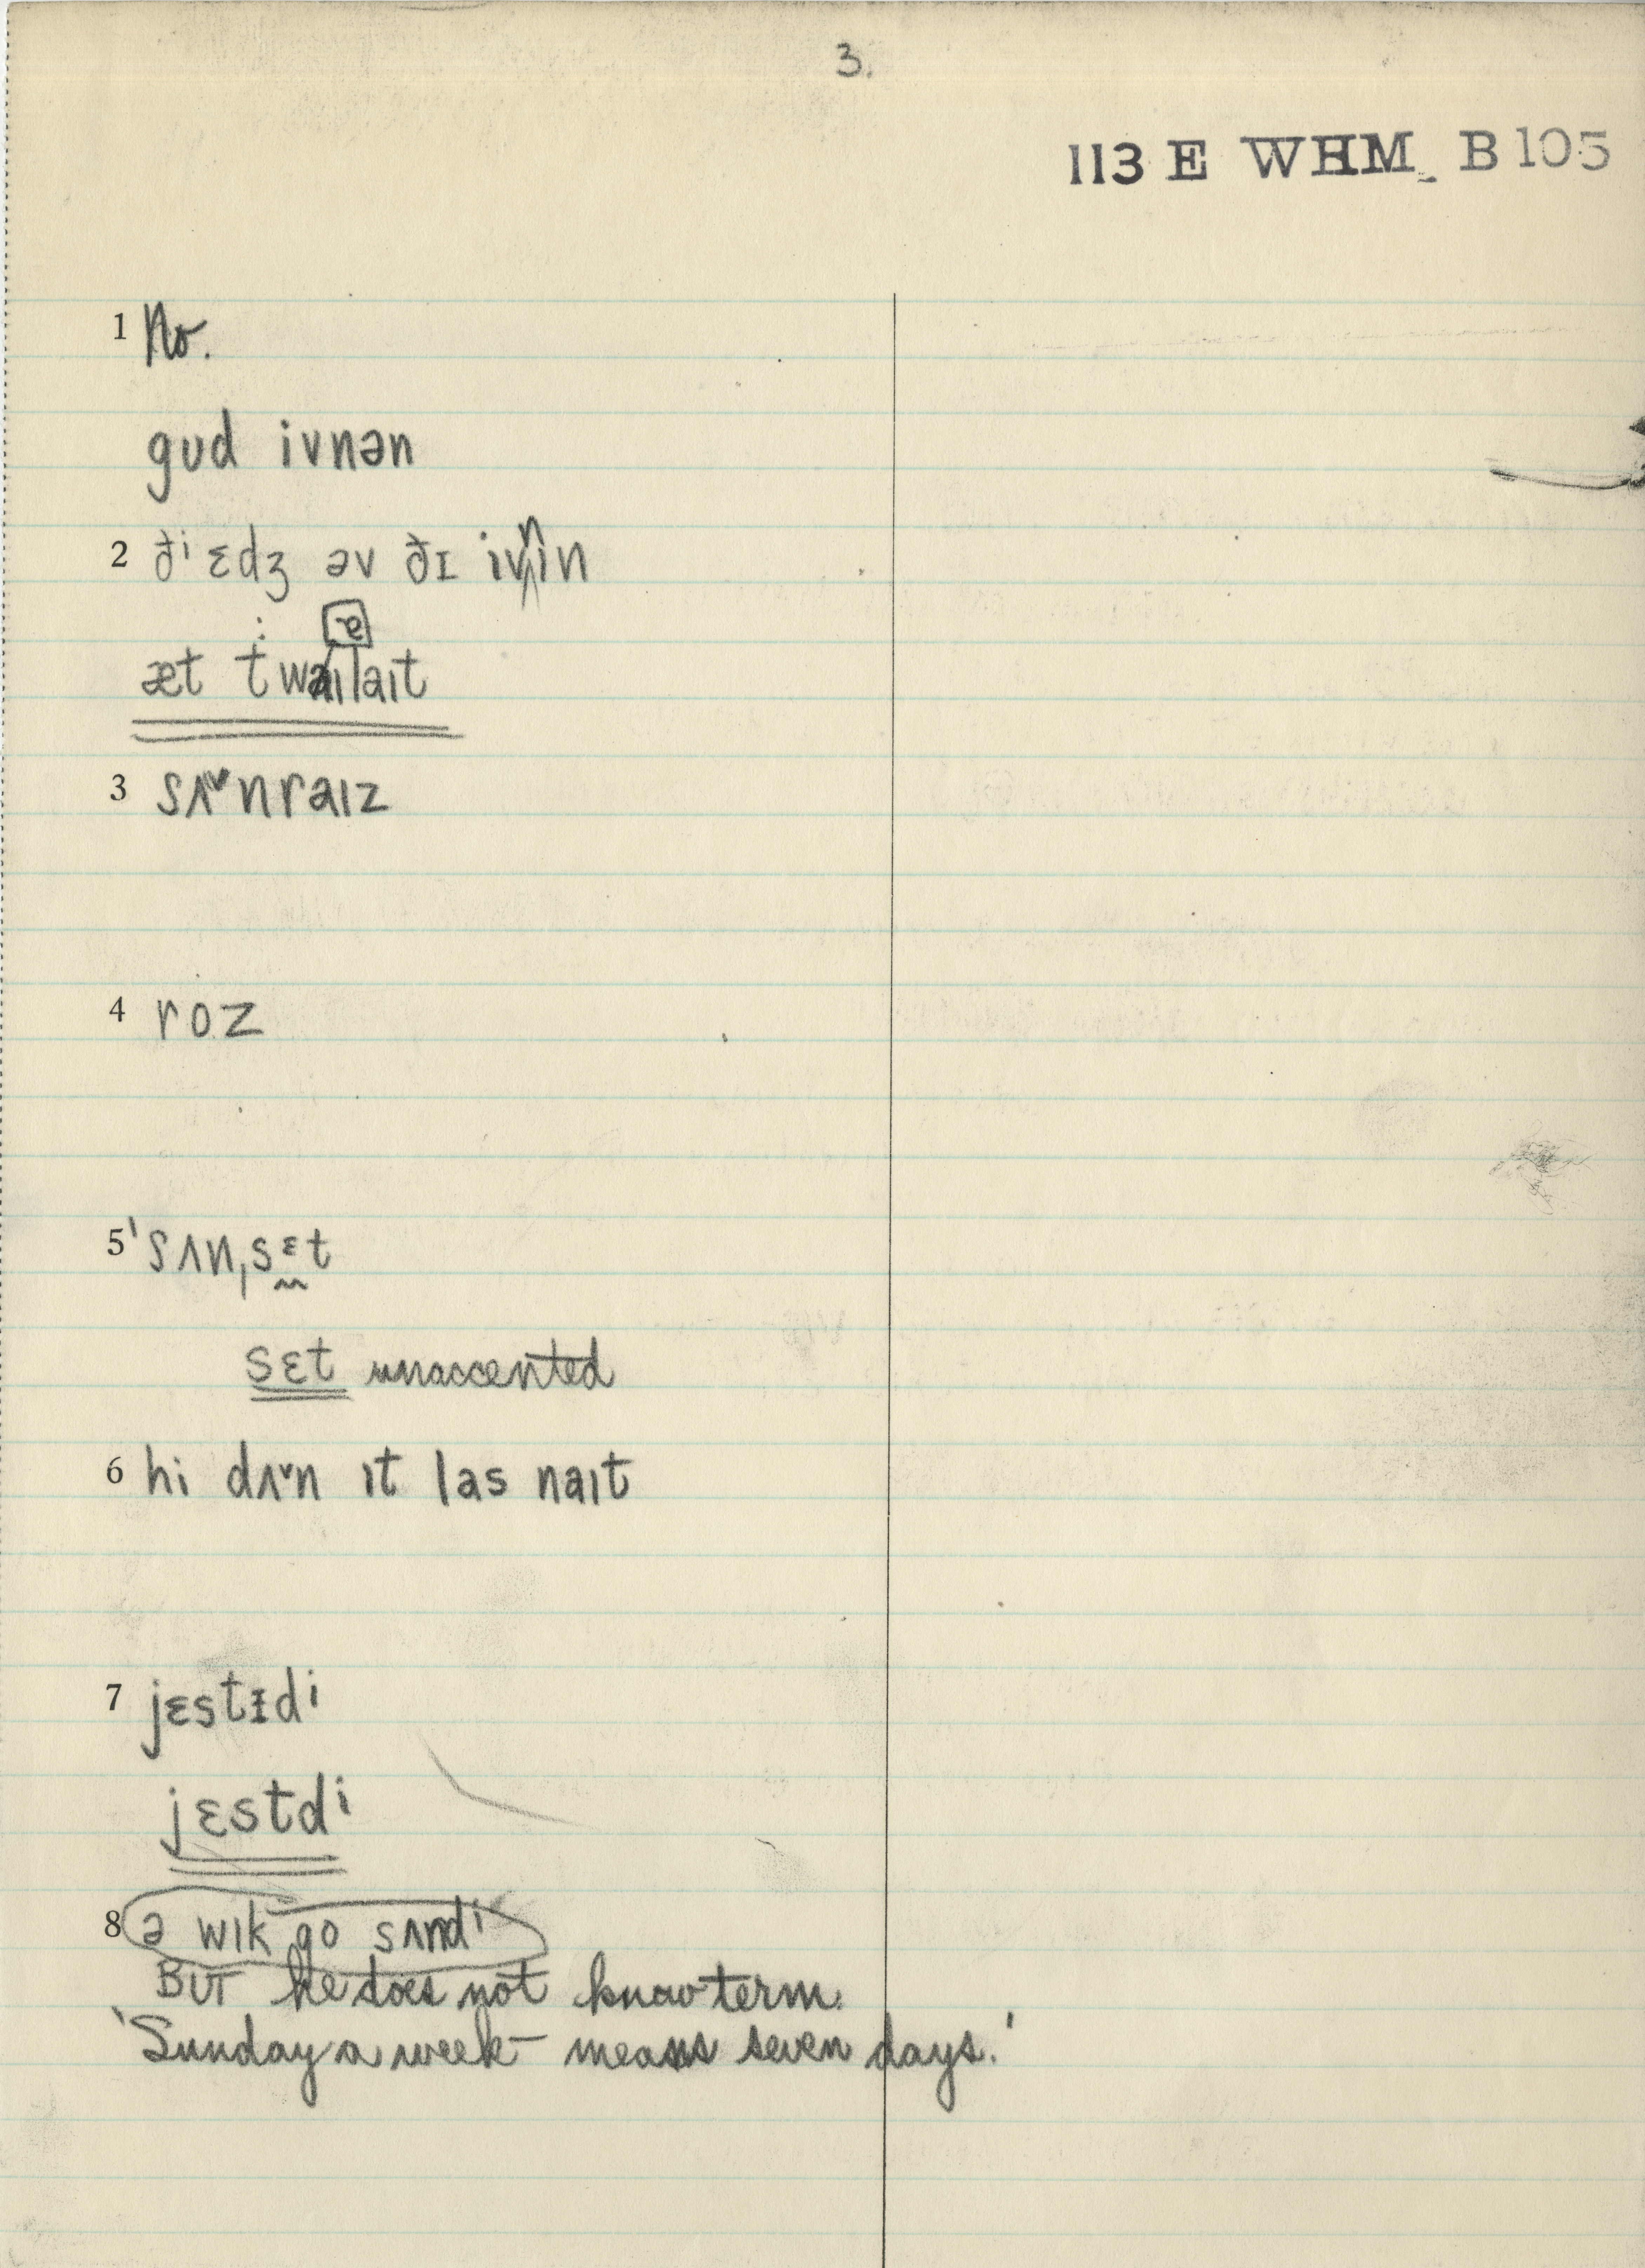 3.
113 E WHM B 105
1 No.
gud ivnən
2 ðⁱ ɛdʒ əv ðɪ ivnin
æt twaılaıt
3 sʌ˅nraız
4 roz
5 ˈsʌnˌsɛt
sɛt unaccented
6 hi dʌ˅n ıt las naıt
7 jɛstɪdⁱ
jɛstdⁱ
8 ə wık go sʌndⁱ
BUT he does not know term.
'Sunday a week – means seven days.'